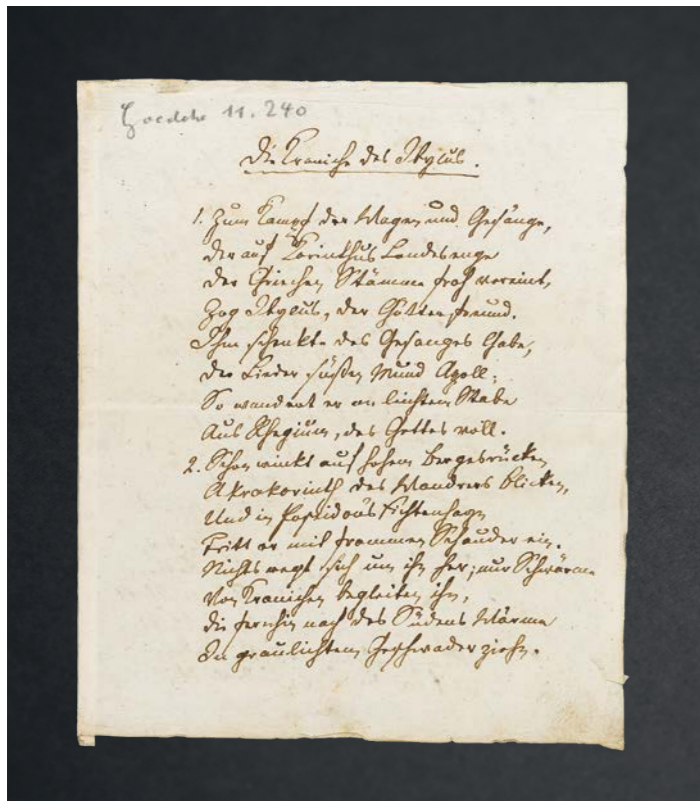 Goedeke 11. 240
Die Kraniche des Ibycus.
1. Zum Kampf der Wagen und Gesänge,
der auf Korinthus Landesenge
der Griechen Stämme froh vereint,
Zog Ibycus, der Götterfreund.
Ihm schenkte des Gesanges Gabe,
der Lieder süßen Mund Apoll;
So wandert er an leichtem Stabe
Aus Rhegium, des Gottes voll.
2. Schon winkt auf hohem Bergesrücken
Akrokorinth des Wandrers Blicken,
Und in Poseidons Fichtenhayn
Tritt er mit frommem Schauder ein.
Nichts regt sich um ihn her; nur Schwärme
Von Kranichen begleiten ihn,
die fernhin nach des Südens Wärme
In graulichtem Geschwader ziehn.